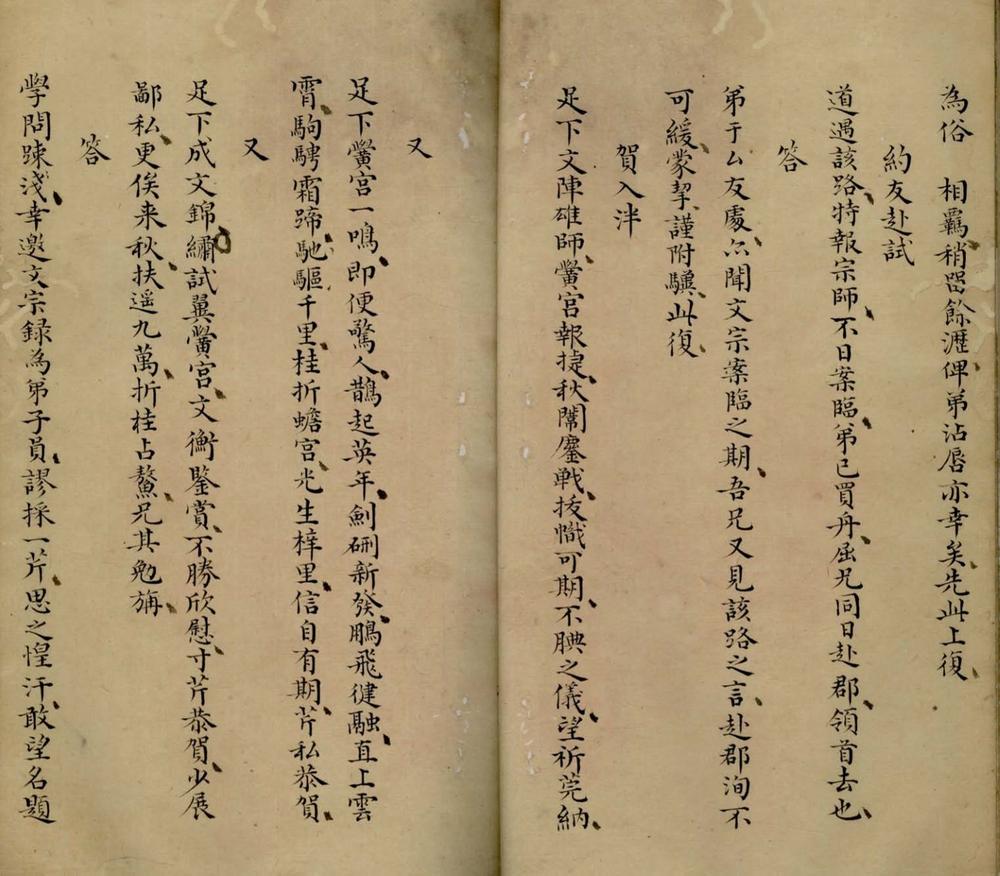 為俗 相羈稍畱餘瀝俾弟沾唇亦幸矣先此上復
約友赴試
道遇該路特報宗師不日案臨弟已買舟屈兄同日赴郡領首去也
答
弟于厶友處尒聞文宗案臨之期吾兄又見該路之言赴郡洵不
可緩蒙挈謹附驥此復
賀入泮
足下文陣雄師黌宮報捷秋闈鏖戦拔幟可期不腆之儀望祈莞納
又
足下黌宮一鳴即便驚人鵲起英年劍硎新發鵬飛健融直上雲
霄駒騁霜蹄馳驅千里桂折蟾宮光生梓里信自有期芹私恭賀
又
足下成文錦繡試翼黌宮文衡鑒賞不勝欣慰寸芹恭賀少展
鄙私更俟来秋扶遥九萬折桂占鰲兄其勉旃
答
學問踈淺幸邀文宗録為弟子員謬採一芹思之惶汗敢望名題